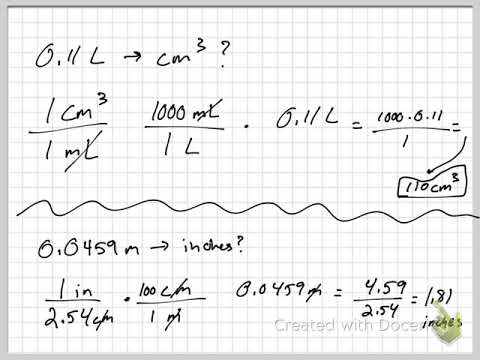 0.11 L → cm³ ?
1 cm³ / 1 mL 1000 mL / 1 L · 0.11 L = 1000·0.11 / 1 =
110 cm³
0.0459 m → inches?
1 in / 2.54 cm · 100 cm / 1 m 0.0459 m = 4.59 / 2.54 = 1.81
inches
Created with Doceri